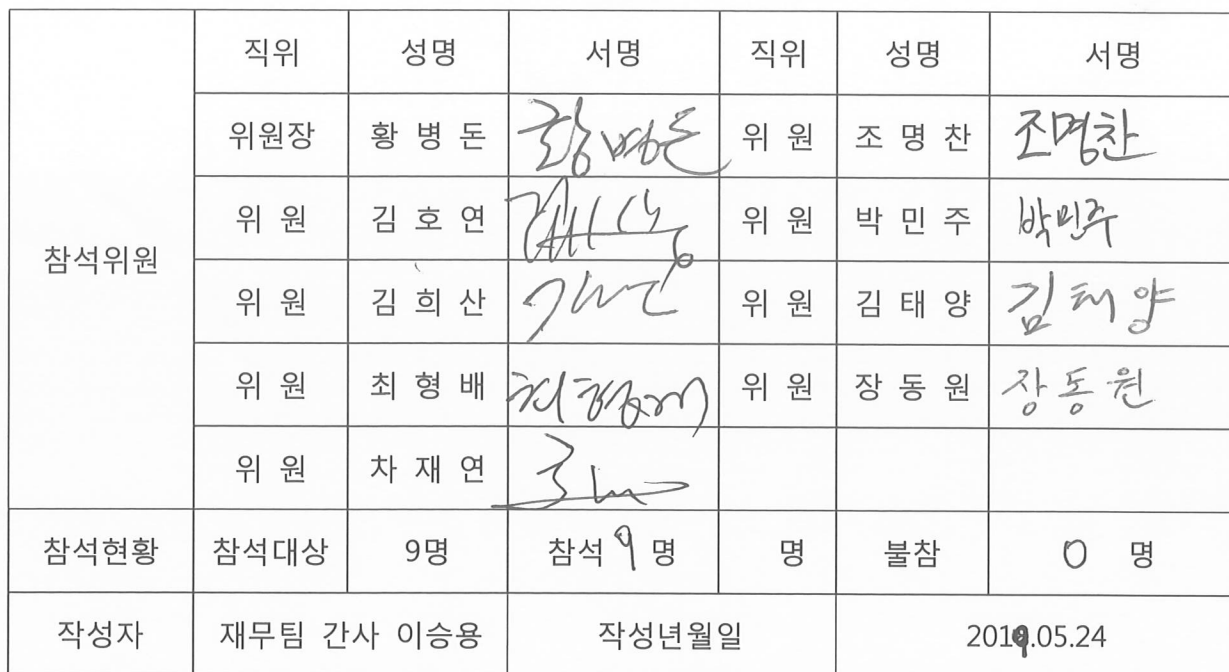 직위 성명 서명 직위 성명 서명
위원장 황병돈 황병돈 위원 조명찬 조명찬
위원 김호연 위원 박민주 박민주
참석위원
위원 김희산 위원 김태양 김태양
위원 최형배 최형배 위원 장동원 장동원
위원 차재연
참석현황 참석대상 9명 참석 9 명 명 불참 0 명
작성자 재무팀 간사 이승용 작성년월일 2019.05.24